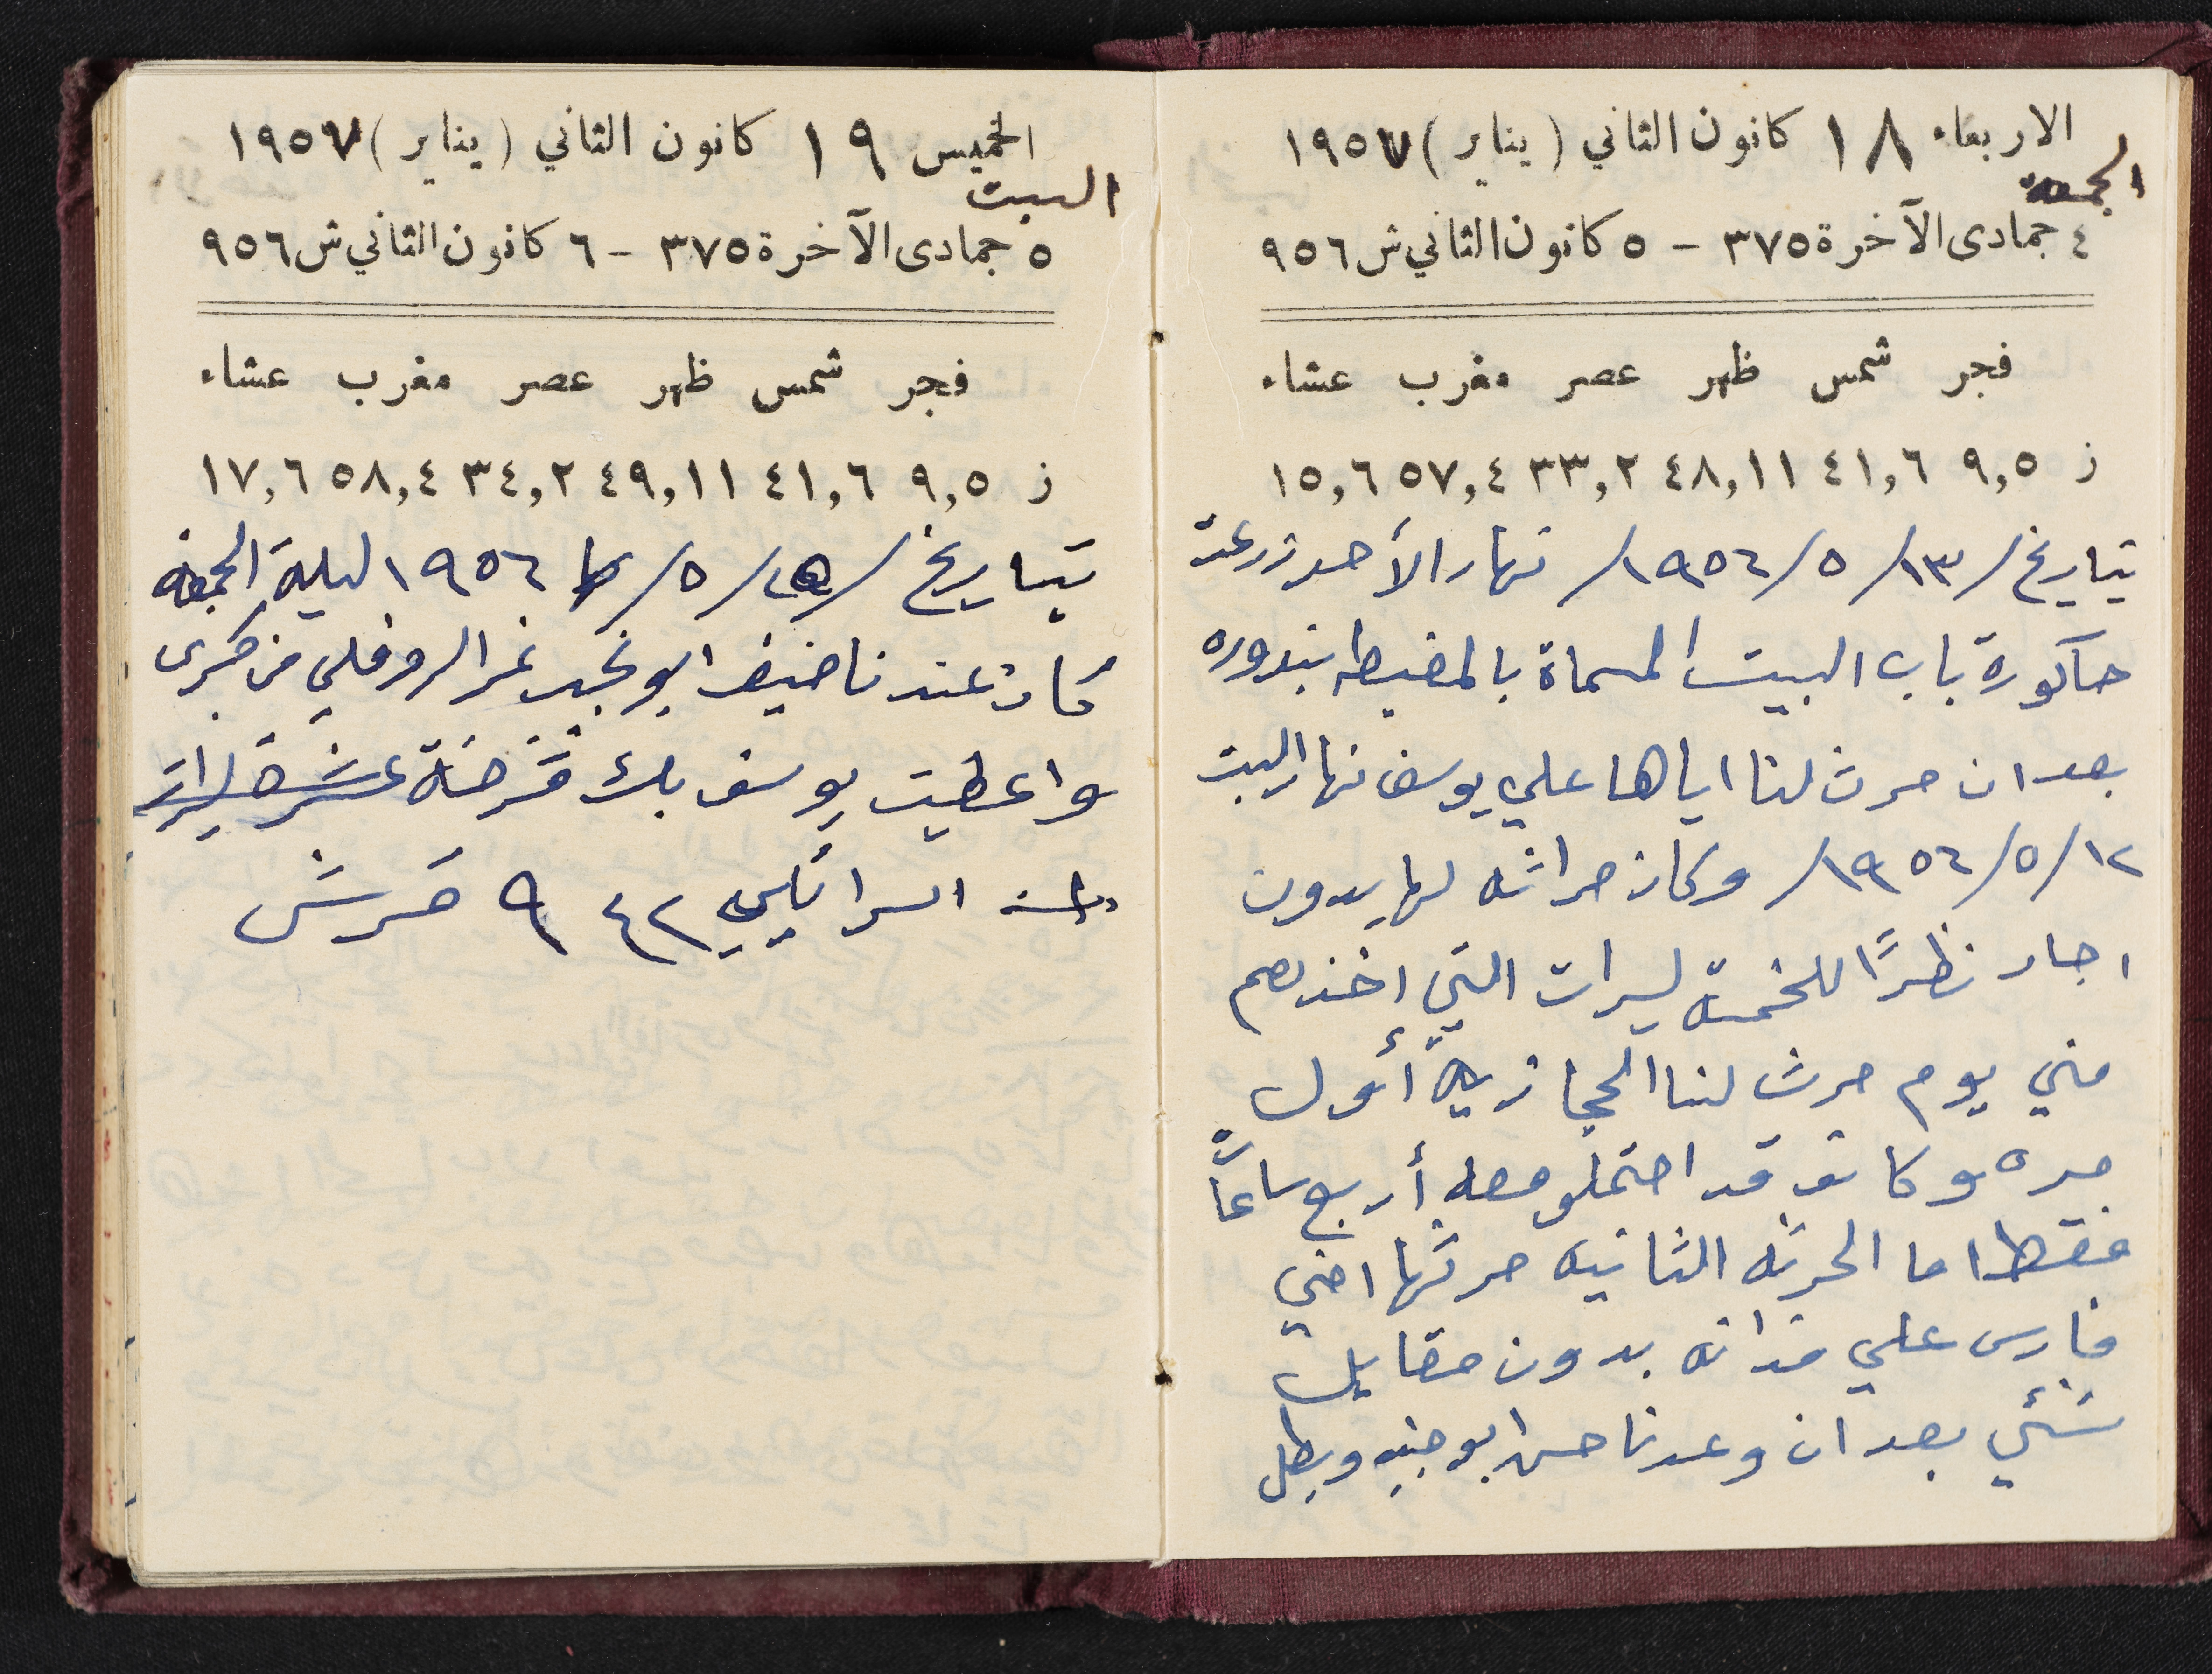 الاربعاء ١٨ كانون الثاني (يناير) ١٩٥٧
الجمعة
٤ جمادى الآخرة ٣٧٥ - ٥ كانون الثاني ش ٩٥٦
فجر شمس ظهر عصر مغرب عشاء
ز ٩,٥ ٤١,٦ ٤٨,١١ ٣٣,٢ ٥٧,٤ ١٥,٦
بتاريخ /١٣/ ٥/ ١٩٥٦/ نهار الأحد زرعت
حاكورة باب البيت المسماة بالمغيطه بندوره
بعد ان حرث لنا اياها علي يوسف نهار السبت
١٢/ ٥/ ١٩٥٦/ وكان حراثه لها بدون
اجار نظرًا للخمسة ليرات التي اخذهم
مني يوم حرث لنا الحجازيه أول
مره وكانو قد احتملو معه أربع ساعات
فقط اما الحرثه الثانيه حرثها اخي
فارس علي فدانه بدون مقابل
شئي بعد ان وعدنا حسن ابو وبطل
الخميس ١٩ كانون الثاني (يناير) ١٩٥٧
السبت
٥ جمادى الآخرة ٣٧٥ - ٦ كانون الثاني ش ٩٥٦
فجر شمس ظهر عصر مغرب عشاء
ز ٩,٥ ٤١,٦ ٤٩,١١ ٣٤,٢ ٥٨,٤ ١٧,٦
بتاريخ / /٥/ ١٩٥٦ ليلة الجمعه
كان عندنا ضيف ابو نمر من
واعطيت يوسف بك قرضة عشرة ليرات
اسرائيلي ٩٤٢ قرش